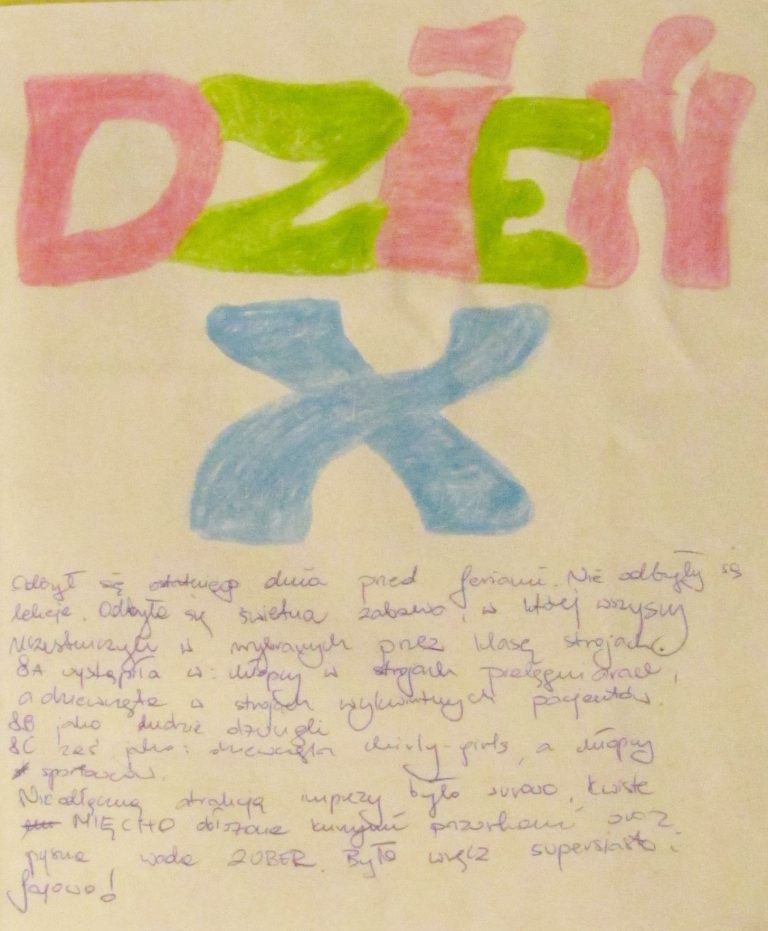 DZIEŃ
X
Odbył się ostatniego dnia przed feriami. Nie odbyły się
lekcje. Odbyła się świetna zabawa, w której wszyscy
uczestniczyli w wybranych przez klasę strojach.
8A wystąpiła w: chłopcy w strojach pielęgniarek,
a dziewczęta w strojach wykwintnych pacjentów.
8B jako ludzie dżungli
8C zaś jako: dziewczęta chirly-girls, a chłopcy
sportowców.
Nieodłączną atrakcją imprezy było surowo, krwiste
MIĘCHO obiszone kurzymi przyrkami oraz
pyszna woda ZUBER. Było wręcz supersiasto i
fajowo!